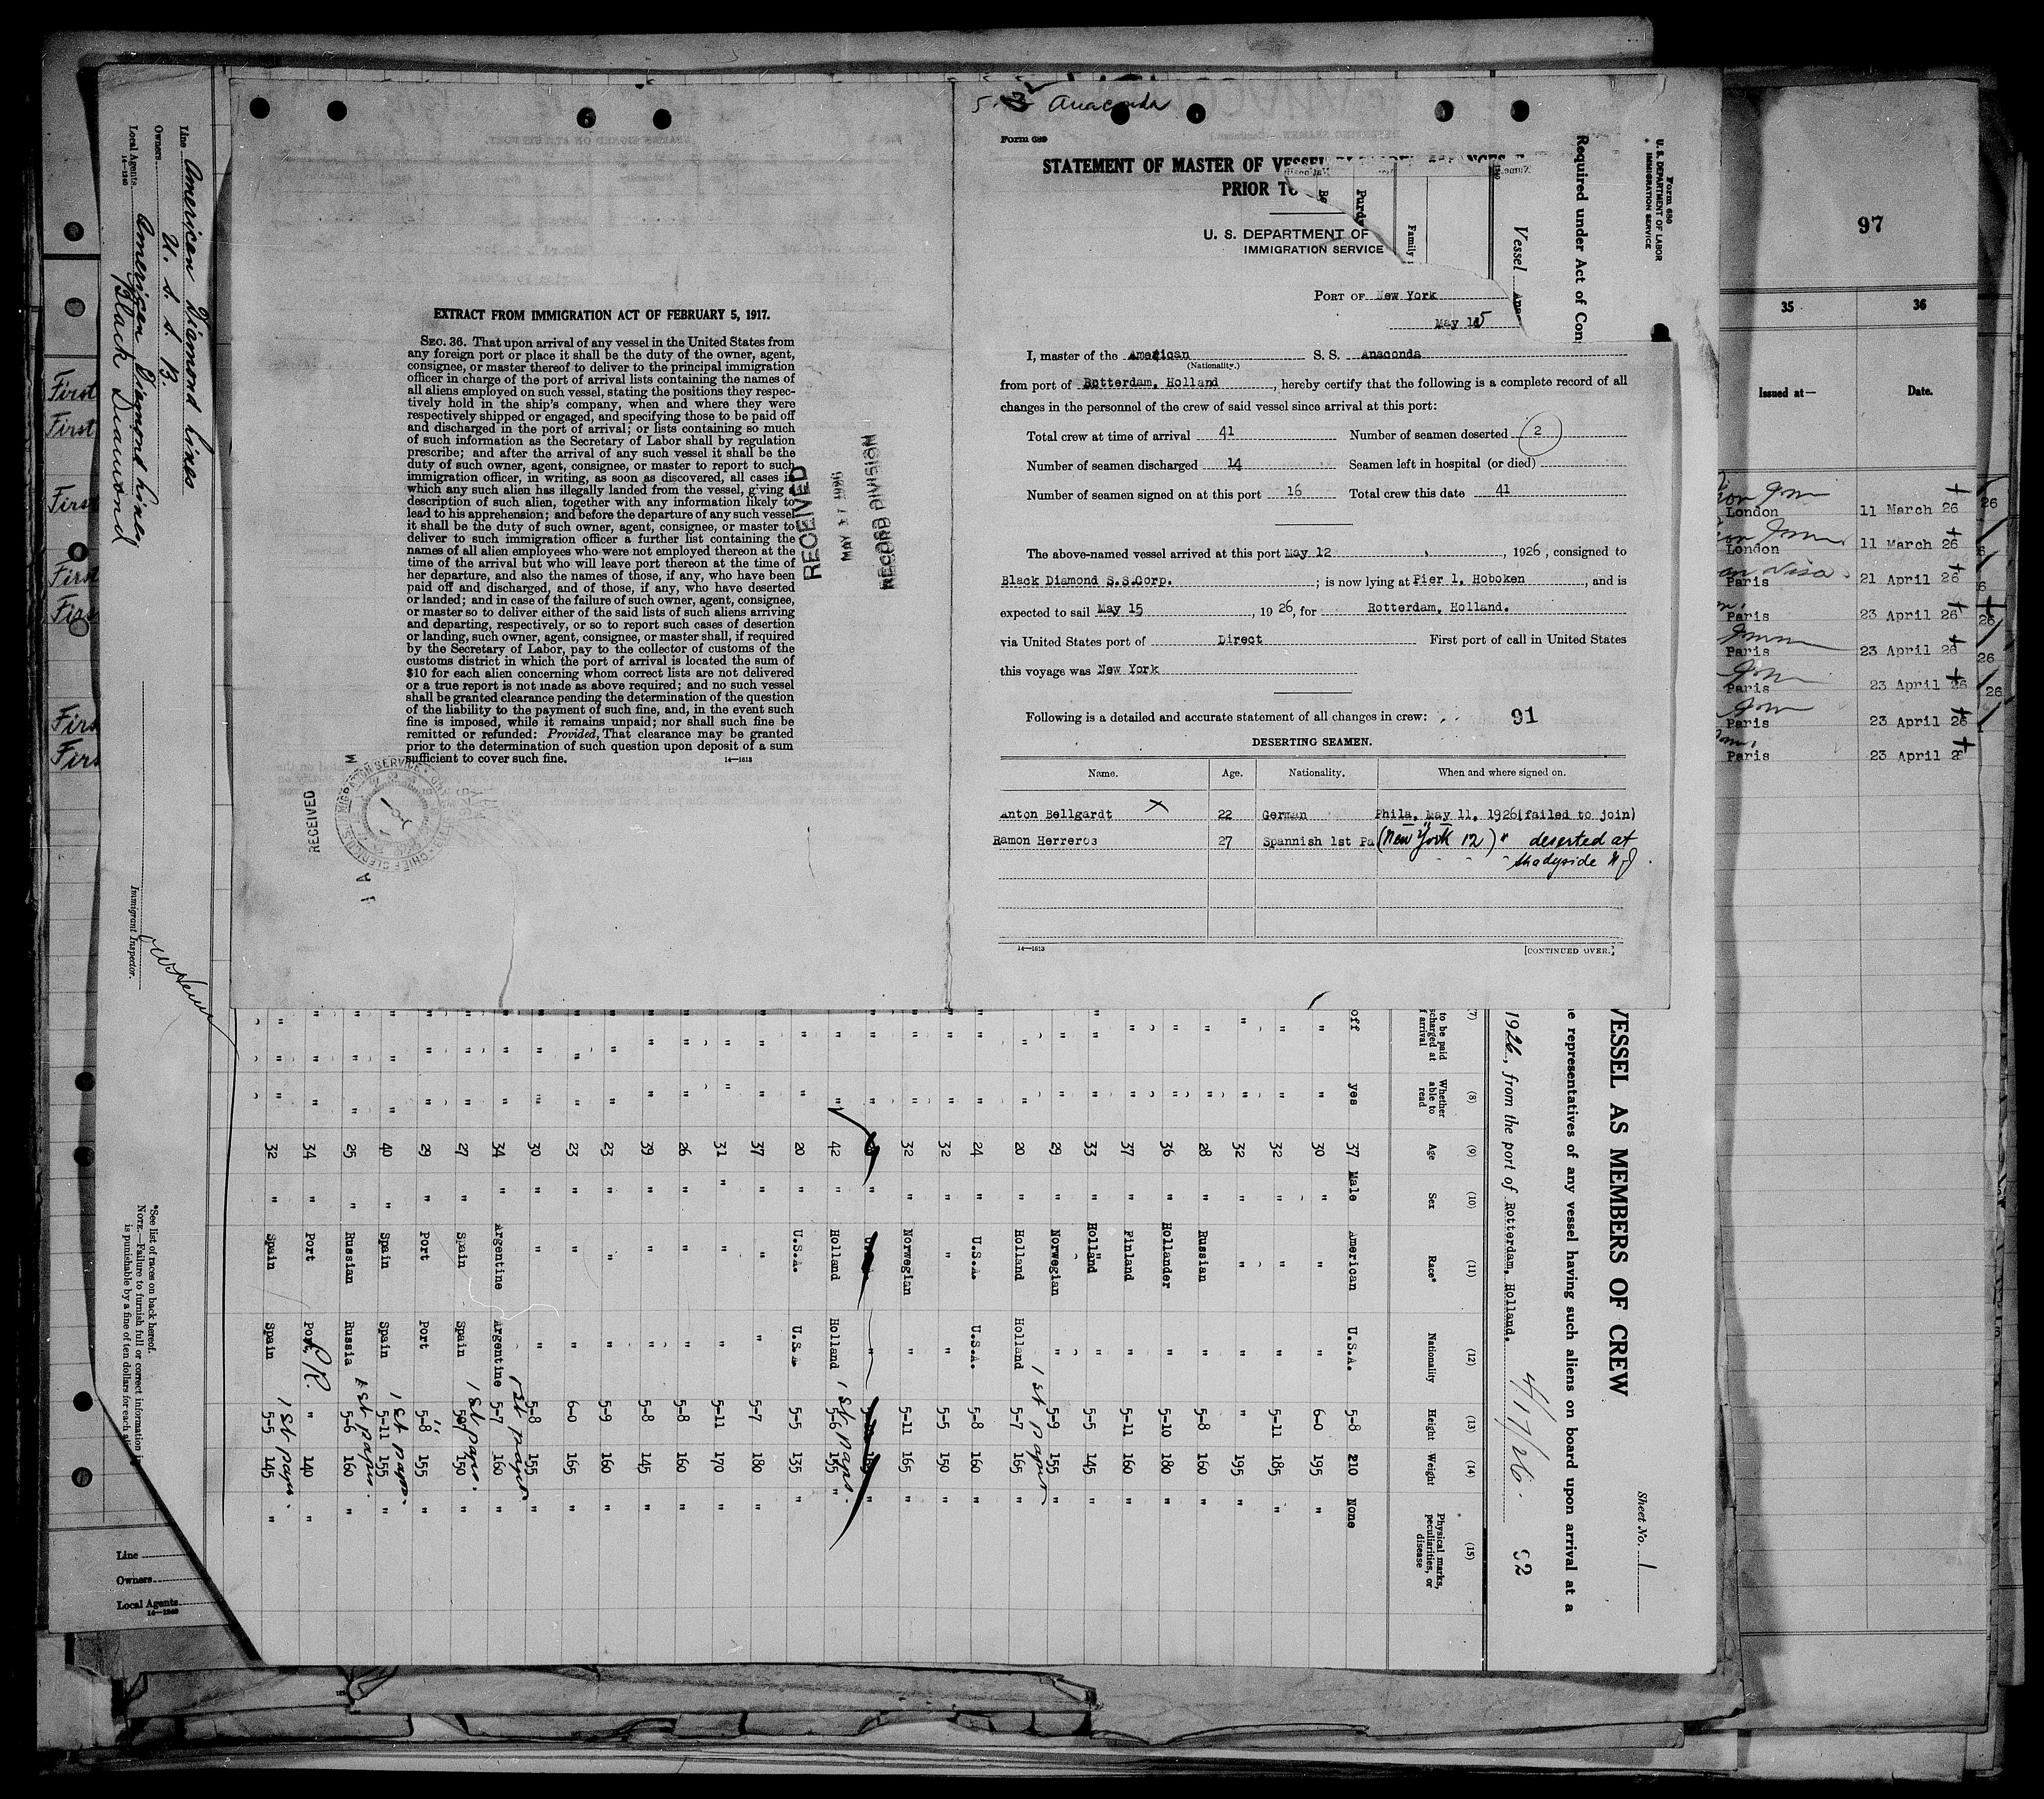 EXTRACT FROM IMMIGRATION ACT OF FEBRUARY 5, 1917.
SEC. 36. That upon arrival of any vessel in the United States from
any foreign port or place it shall be the duty of the owner, agent,
consignee, or master thereof to deliver to the principal immigration
officer in charge of the port of arrival lists containing the names of
all aliens employed on such vessel, stating the positions they respec-
tively hold in the ship's company, when and where they were
respectively shipped or engaged, and specifying those to be paid off
and discharged in the port of arrival; or lists containing so much
of such information as the Secretary of Labor shall by regulation
prescribe; and after the arrival of any such vessel it shall be the
duty of such owner, agent, consignee, or master to report to such
immigration officer, in writing, as soon as discovered, all cases in
which any such alien has illegally landed from the vessel, giving a
description of such alien, together with any information likely to
lead to his apprehension; and before the departure of any such vessel
it shall be the duty of such owner, agent, consignee, or master to
deliver to such immigration officer a further list containing the
names of all alien employees who were not employed thereon at the
time of the arrival but who will leave port thereon at the time of
her departure, and also the names of those, if any, who have been
paid off and discharged, and of those, if any, who have deserted
or landed; and in case of the failure of such owner, agent, consignee,
or master so to deliver either of the said lists of such aliens arriving
and departing, respectively, or so to report such cases of desertion
or landing, such owner, agent, consignee, or master shall, if required
by the Secretary of Labor, pay to the collector of customs of the
customs district in which the port of arrival is located the sum of
$10 for each alien concerning whom correct lists are not delivered
or a true report is not made as above required; and no such vessel
shall be granted clearance pending the determination of the question
of the liability to the payment of such fine, and, in the event such
fine is imposed, while it remains unpaid; nor shall such fine be
remitted or refunded: Provided, That clearance may be granted
prior to the determination of such question upon deposit of a sum
sufficient to cover such fine.
14—1613
RECEIVED
MAY 17 1926
RECORD DIVISION
RECEIVED
Anaconda
Form 689
STATEMENT OF MASTER OF VESSEL
PRIOR TO
U. S. DEPARTMENT OF
IMMIGRATION SERVICE
PORT OF New York
May 15
I, master of the American S. S. Anaconda
(Nationality.)
from port of Rotterdam, Holland, hereby certify that the following is a complete record of all
changes in the personnel of the crew of said vessel since arrival at this port:
Total crew at time of arrival 41 Number of seamen deserted 2
Number of seamen discharged 14 Seamen left in hospital (or died)
Number of seamen signed on at this port 16 Total crew this date 41
The above-named vessel arrived at this port May 12, 1926, consigned to
Black Diamond S.S.Corp.; is now lying at Pier 1, Hoboken, and is
expected to sail May 15, 19 26, for Rotterdam, Holland.
via United States port of Direct First port of call in United States
this voyage was New York
Following is a detailed and accurate statement of all changes in crew: 91
DESERTING SEAMEN.
Name. Age. Nationality. When and where signed on.
Anton Bellgardt X 22 German Phila. May 11, 1926(failed to join)
Ramon Herreros 27 Spannish 1st Pa (New York 12) " deserted at
Shadyside N J
14—1613 [CONTINUED OVER.]
Form 680
U. S. DEPARTMENT OF LABOR
IMMIGRATION SERVICE
Required under Act of Con
Vessel Ana
Family
Purdy
Sheet No. 1
VESSEL AS MEMBERS OF CREW
e representatives of any vessel having such aliens on board upon arrival at a
1926, from the port of Rotterdam, Holland. 4/17/26. 92
(7) (8) (9) (10) (11) (12) (13) (14) (15)
to be paid
scharged at
f arrival
Whether able to read
Age
Sex
Race*
Nationality
Height
Weight
Physical marks, peculiarities, or disease
off yes 37 Male American U.S.A. 5-8 210 None
" " 30 " " " 6-0 195 "
" " 32 " " " 5-11 185 "
" " 32 " " " " 195 "
" " 28 " Russian " 5-8 160 "
" " 36 " Hollander " 5-10 180 "
" " 37 " Finland " 5-11 160 "
" " 33 " Holland " 5-5 145 "
" " 29 " Norwegian " 5-9 155 "
1st paper
" " 20 " Holland Holland 5-7 165 "
" " 24 " U.S.A. U.S.A. 5-8 160 "
" " 32 " " " 5-5 150 "
" " 32 " Norwegian " 5-11 165 "
" " 42 " Holland Holland 5-6 155 "
1st paps.
" " 20 " U.S.A. U.S.A 5-5 135 "
" " 37 " " " 5-7 180 "
" " 31 " " " 5-11 170 "
" " 26 " " " 5-8 160 "
" " 39 " " " 5-8 145 "
" " 23 " " " 5-9 160 "
" " 23 " " " 6-0 165 "
" " 30 " " " 5-8 155 "
1st paper
" " 34 " Argentine Argentine 5-7 160 "
" " 27 " Spain Spain 5-7 150 "
1st paps.
" " 29 " Port Port 5-8 155 "
" " 40 " Spain Spain 5-11 155 "
1st paper
" " 25 " Russian Russia 5-6 160 "
1st paper.
" " 34 " Port Port P.R. " 140 "
" " 32 " Spain Spain 5-5 145 "
1st paper.
Line American Diamond Lines
Owners U. S. S. B.
Local Agents American Diamond Lines
Black Diamond
14—1240
Immigrant Inspector.
*See list of races on back hereof.
NOTE.—Failure to furnish full or correct information
is punishable by a fine of ten dollars for each
Line
Owners
Local Agents
14—1240
First
First
First
First
First
First
First
97
35 36
Issued at— Date.
London 11 March 26
London 11 March 26
Paris 21 April 26
Paris 23 April 26
Paris 23 April 26
Paris 23 April 26
Paris 23 April 26
Paris 23 April 2